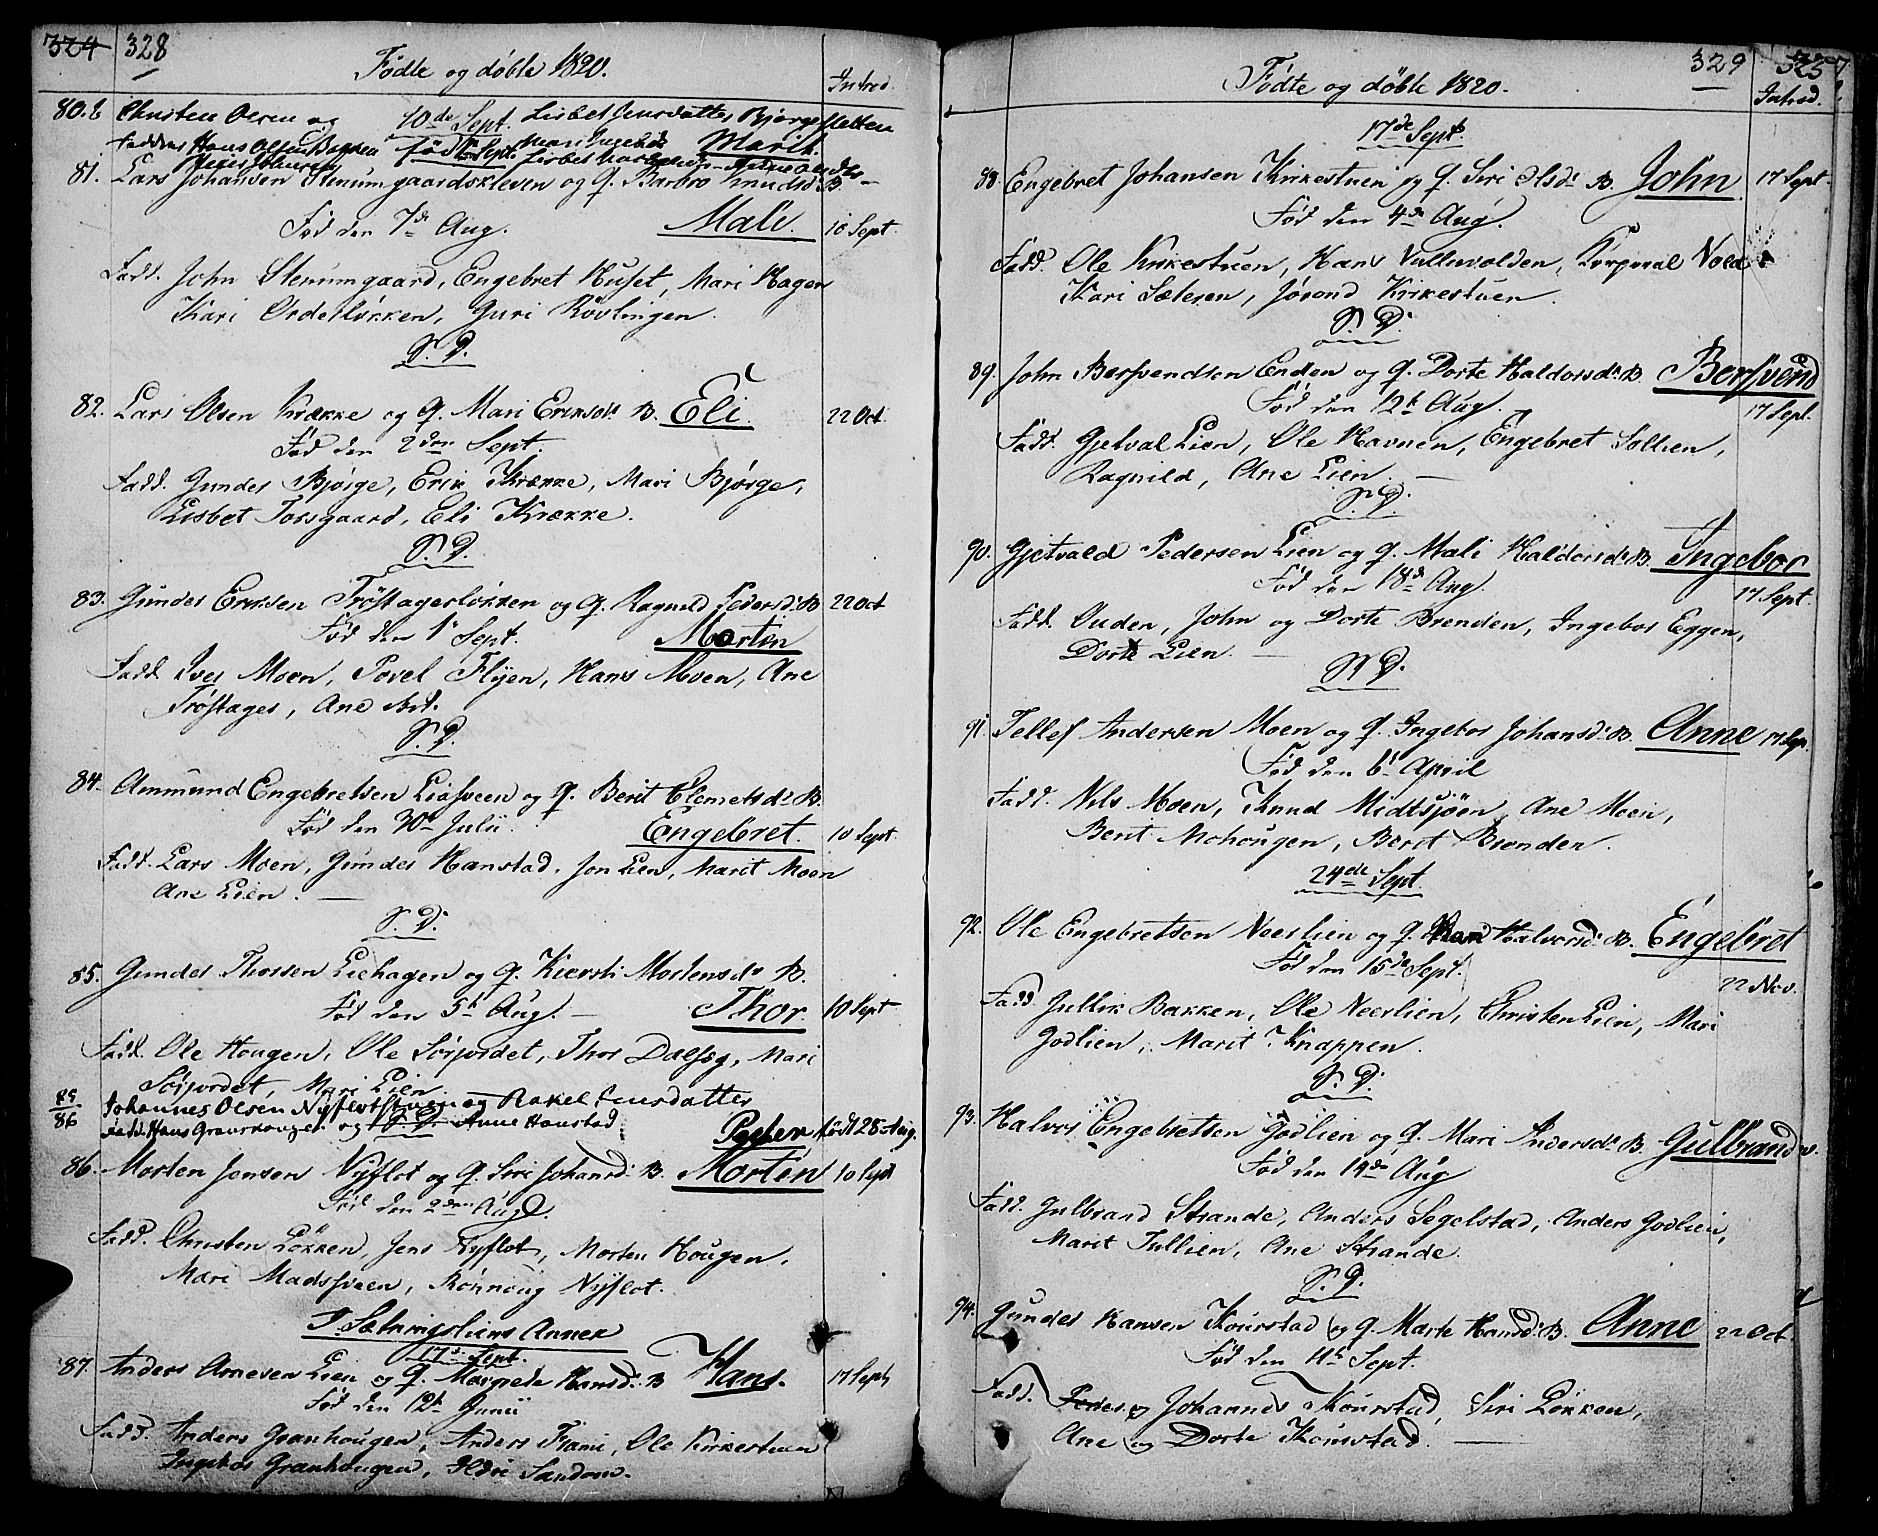 324 328
Födte og döbte 1820.
Introd.
80.b Christen Olsen og 10de Sept. Lisbet Jensdatter Bjørgesletten
Faddere Hans Olsen Bakken född Sept. Mari Marit.
81. Lars Johansen Stenumgaardskleven og q. Barbro Knudsd: B
Fød den 7de Aug. Mali. 10 Sept.
Fadd. John Stenumgaard, Engebret Huset, Mari Hagen
Kari Ordeslökken, Guri Rövlingen.
S. D.
82. Lars Olsen Krække og q. Mari Eriksdr B. Eli. 22 Oct.
Fød den 2den Sept.
Fadd. Gunder Bjørge, Erik Krække, Mari Bjørge,
Lisbet Forsgaard, Eli Krække.
S. D.
83. Gunder Eriksen Tröstagerlökken og q. Ragnild Pedersd: B 22 Oct
Fød den 1 Sept. Morten
Fadd. Iver Moen, Povel Flyen, Hans Moen, Ane
Tröstager, Ane ibid.
S. D.
84. Ammund Engebretsen Liasveen og q. Berit Clemetsdr B.
Fød den 30te Julii. Engebret. 10 Sept.
Fadd. Lars Moen, Gunder Hanstad, Jon Lien, Marit Moen
Ane Lien.
S. D.
85. Gunder Thorsen Liehagen og q. Kiersti Mortensdr B.
Fød den 5te Aug. Thor 10 Sept
Fadd. Ole Hougen, Ole Sörjordet, Thor Dalseg, Mari
Sörjordet, Mari Lien
85/86 Johannes Olsen Nyflotstuen og Rakel Jensdatter
Fadd. Hans Gravhougen og S. D. Anne Hanstad Peder födt 28 Aug.
86. Morten Jensen Nyflot og q. Siri Johansd: B. Morten 10 Sept
Fød den 2den Aug.
Fadd. Christen Lökken, Jens Nyflot, Morten Hougen,
Mari Madssveen, Rönnoug Nyflot.
I Sætningsliens Annex
17de Sept.
87. Anders Arnesen Lien og q. Margrete Hansd: B Hans. 17 Sept
Fød den 12te Junii
Fadd. Anders Granhougen, Anders Frami, Ole Kirkestuen
Ingebor Granhougen, Ildri Sandom.
Födte og döbte 1820. 329 325
Introd.
17de Sept.
88. Engebret Johansen Kirkestuen og q. Siri Olsdr B. John 17 Sept.
Fød den 4de Aug.
Fadd. Ole Kirkestuen, Hans Vullumvolden, Korporal Vold
Kari Sæteren, Jörond Kirkestuen.
S. D.
89. John Bersvendsen Enden og q. Dorte Haldorsdr B. Bersvend
Fød den 12te Aug. 17 Sept.
Fadd. Gjetval Lien, Ole Havnen, Engebret Sollien,
Ragnild, Ane Lien.
S. D.
90. Gjetvald Pedersen Lien og q. Mali Haldorsdr B. Ingebor
Fød den 18de Aug. 17 Sept.
Fadd. Ouden, John og Dorte Brenden, Ingebor Eggen,
Dorte Lien.
S. D.
91. Tellef Andersen Moen og q. Ingebor Johansd: B. Anne 17 Sep.
Fød den 6te April
Fadd. Nils Moen, Knud Midtsjöen, Ane Moen,
Berit Mohougen, Berit Brenden.
24de Sept.
92. Ole Engebretsen Neerlien og q. Kari Halvorsd: B. Engebret
Fød den 15de Sept. 22 Nov.
Fadd. Jullik Bakken, Ole Neerlien, Christen Lien, Mari
Godlien, Marit Knappen.
S. D.
93. Halvor Engebretsen Godlien og q. Mari Andersdr B. Gulbrand
Fød den 19de Aug
Fadd. Gulbrand Strande, Anders Segelstad, Anders Godlien,
Marit Jullien, Ane Strande.
S. D.
94. Gunder Hansen Kourstad og q. Marte Hansd: B. Anne 22 Oct.
Fød den 11te Sept.
Fadd. Peder og Johannes Kourstad, Siri Lökken,
Ane og Dorte Kourstad.